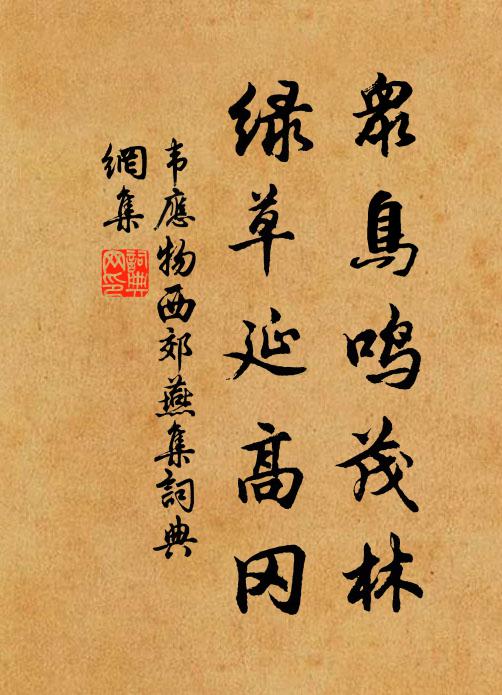 眾鳥鳴茂林
绿草延高冈
韦應物西郊燕集詞典
網集
詞典网印